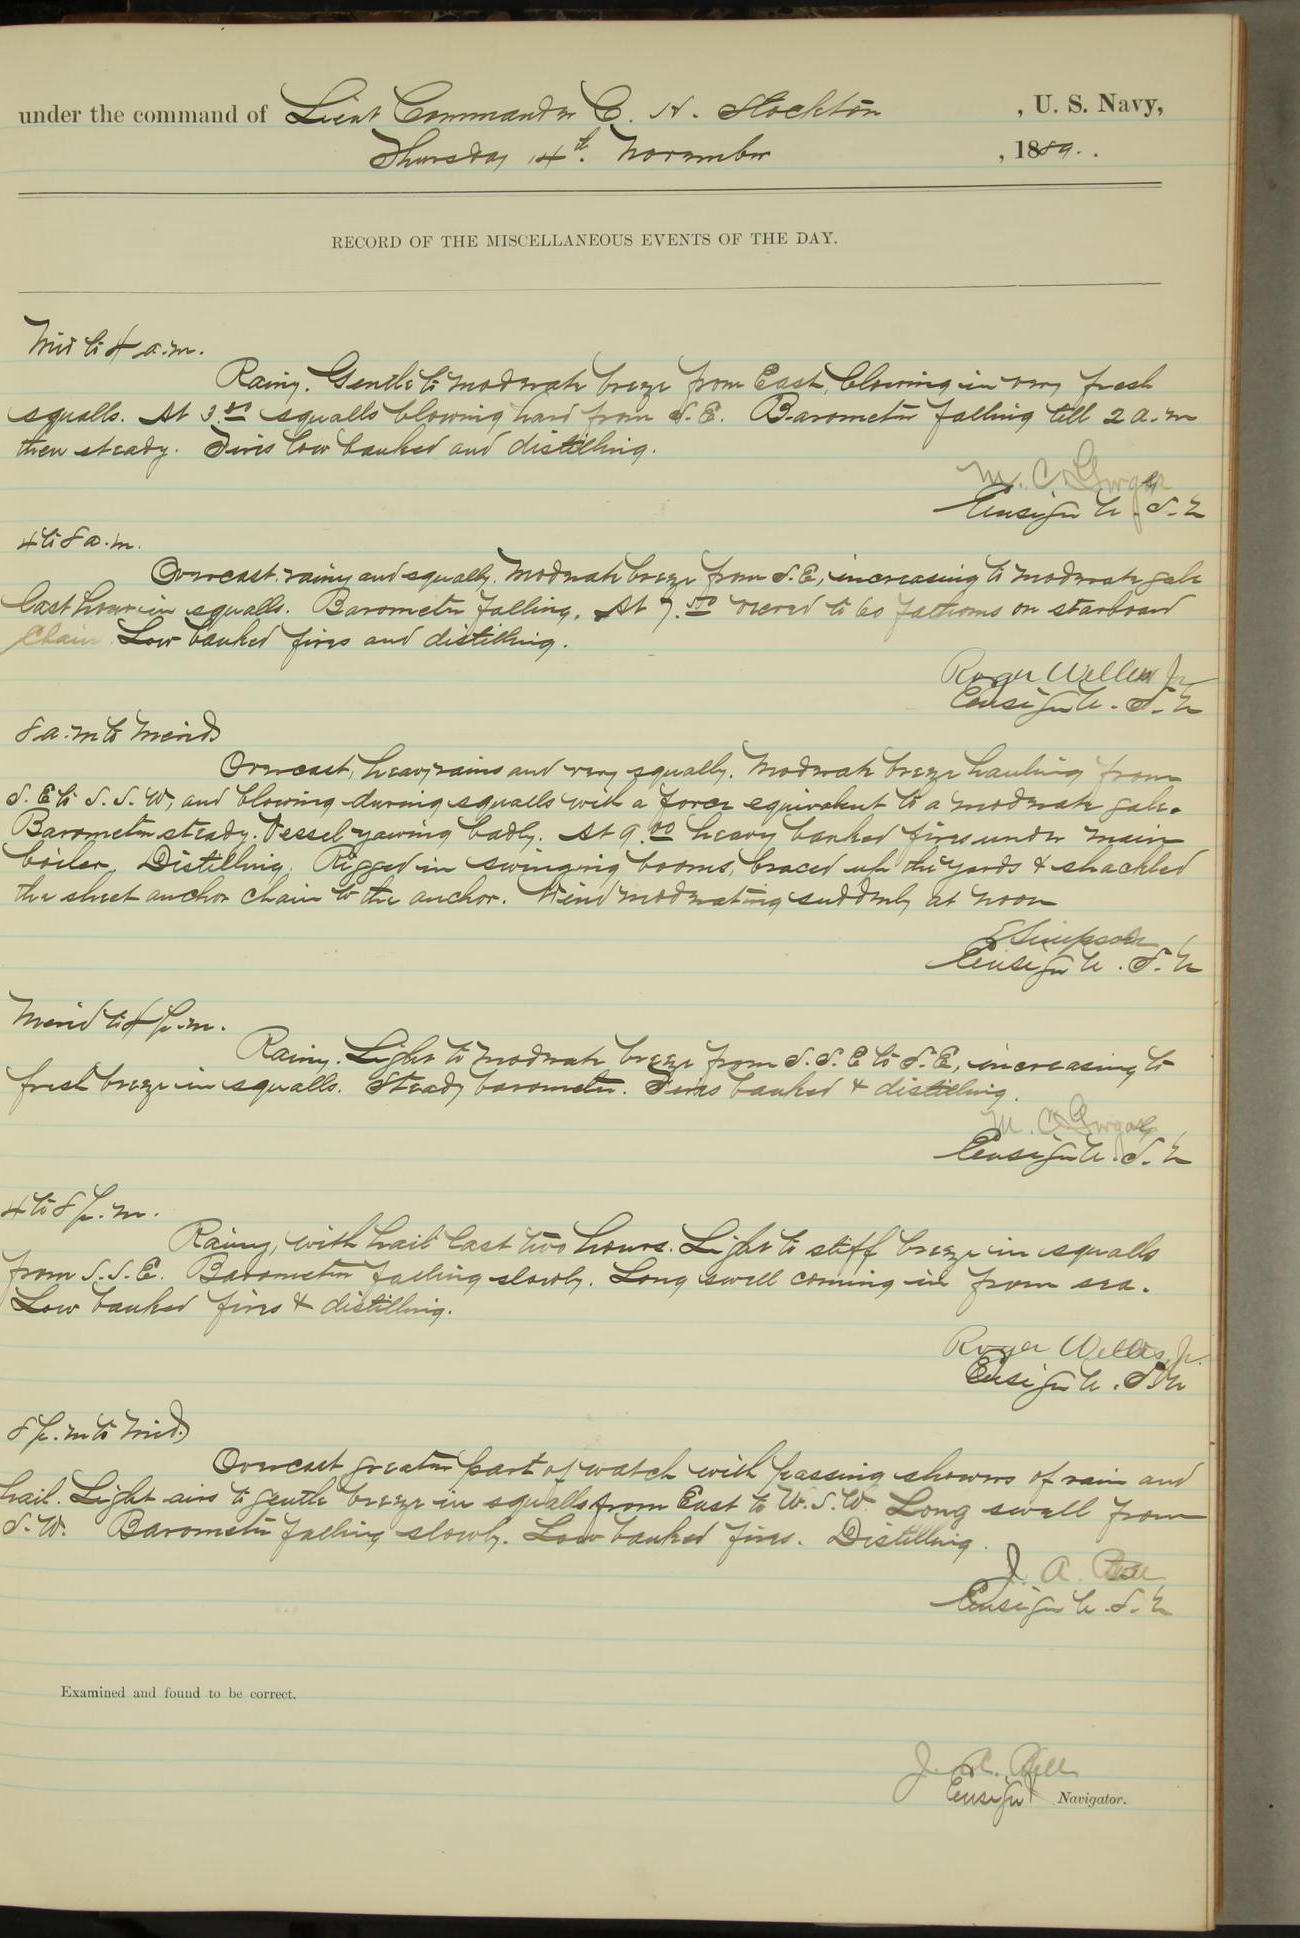 under the command of Lieut Commander C. H. Stockton, U. S. Navy,
Thursday 14th. November, 1889.
RECORD OF THE MISCELLANEOUS EVENTS OF THE DAY.
Mid to 4 a.m.
Rainy. Gentle to moderate breeze from East, blowing in very fresh
squalls. At squalls blowing hard from S.E. Barometer falling till 2 a.m
then steady. Fires low banked and distilling.
M. C. Gorgas
Ensign U.S.N
4 to 8 a.m.
Overcast, rainy and squally. Moderate breeze from S.E, increasing to moderate gale
last hour in squalls. Barometer falling. At veered to 60 fathoms on starboard
chain. Low banked fires and distilling.
Roger Welles Jr
Ensign U.S.N
8 a.m to Merid
Overcast, heavy rains and very squally. Moderate breeze hauling from
S.E to S.S.W, and blowing during squalls with a force equivalent to a moderate gale.
Barometer steady. Vessel yawing badly. At 9.00 heavy banked fires under main
boiler. Distilling. Rigged in swinging booms, braced up the yards & shackled
the sheet anchor chain to the anchor. Wind moderating suddenly at noon
E Simpson
Ensign U.S.N
Merid to 4 p.m.
Rainy. Light to moderate breeze from S.S.E to S.E, increasing to
fresh breeze in squalls. Steady barometer. Fires banked & distilling.
M. C. Gorgas
Ensign U.S.N
4 to 8 p.m.
Rainy, with hail last two hours. Light to stiff breeze in squalls
from S.S.E. Barometer falling slowly. Long swell coming in from sea.
Low banked fires & distilling.
Roger Welles, Jr.
Ensign U.S.N
8 p.m to Mid.
Overcast greater part of watch with passing showers of rain and
hail. Light airs to gentle breeze in squalls from East to W.S.W. Long swell from
S.W. Barometer falling slowly. Low banked fires. Distilling.
J. A. Bell
Ensign U.S.N
Examined and found to be correct.
J. A. Bell
Ensign Navigator.